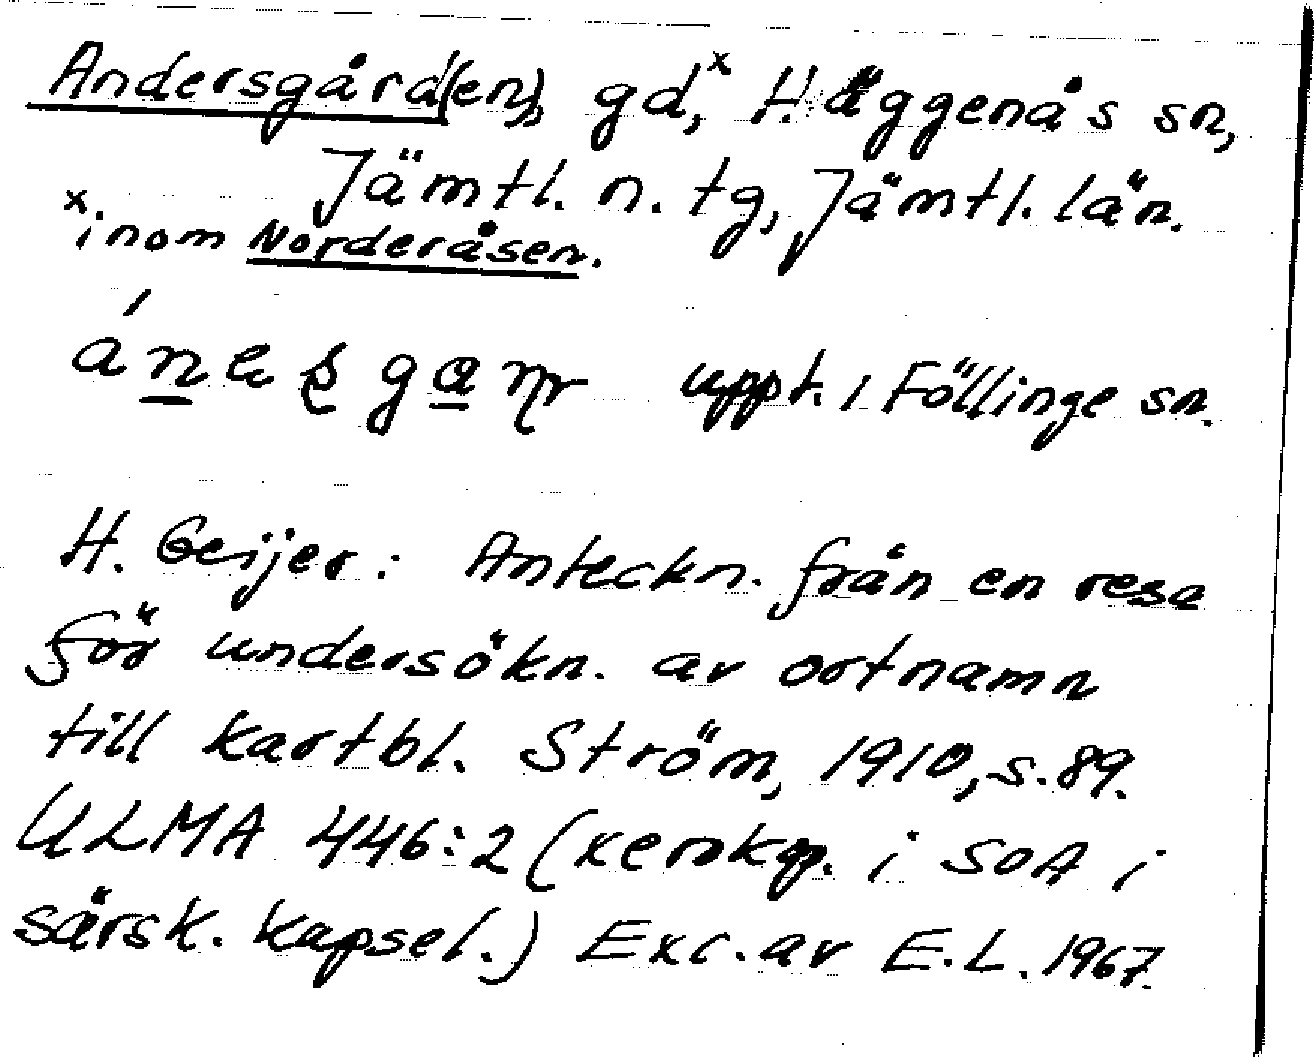 Andersgård(en), gd,ˣ Häggenås sn,
Jämtl. n. tg, Jämtl. län.
ˣ inom Norderåsen.
uppt. i Föllinge sn.
H. Geijer: Anteckn. från en resa
för undersökn. av ortnamn
till kartbl. Ström, 1910, s. 89.
ULMA 446:2 (xerokop. i SOA i
särsk. kapsel.) Exc. av E.L. 1967.